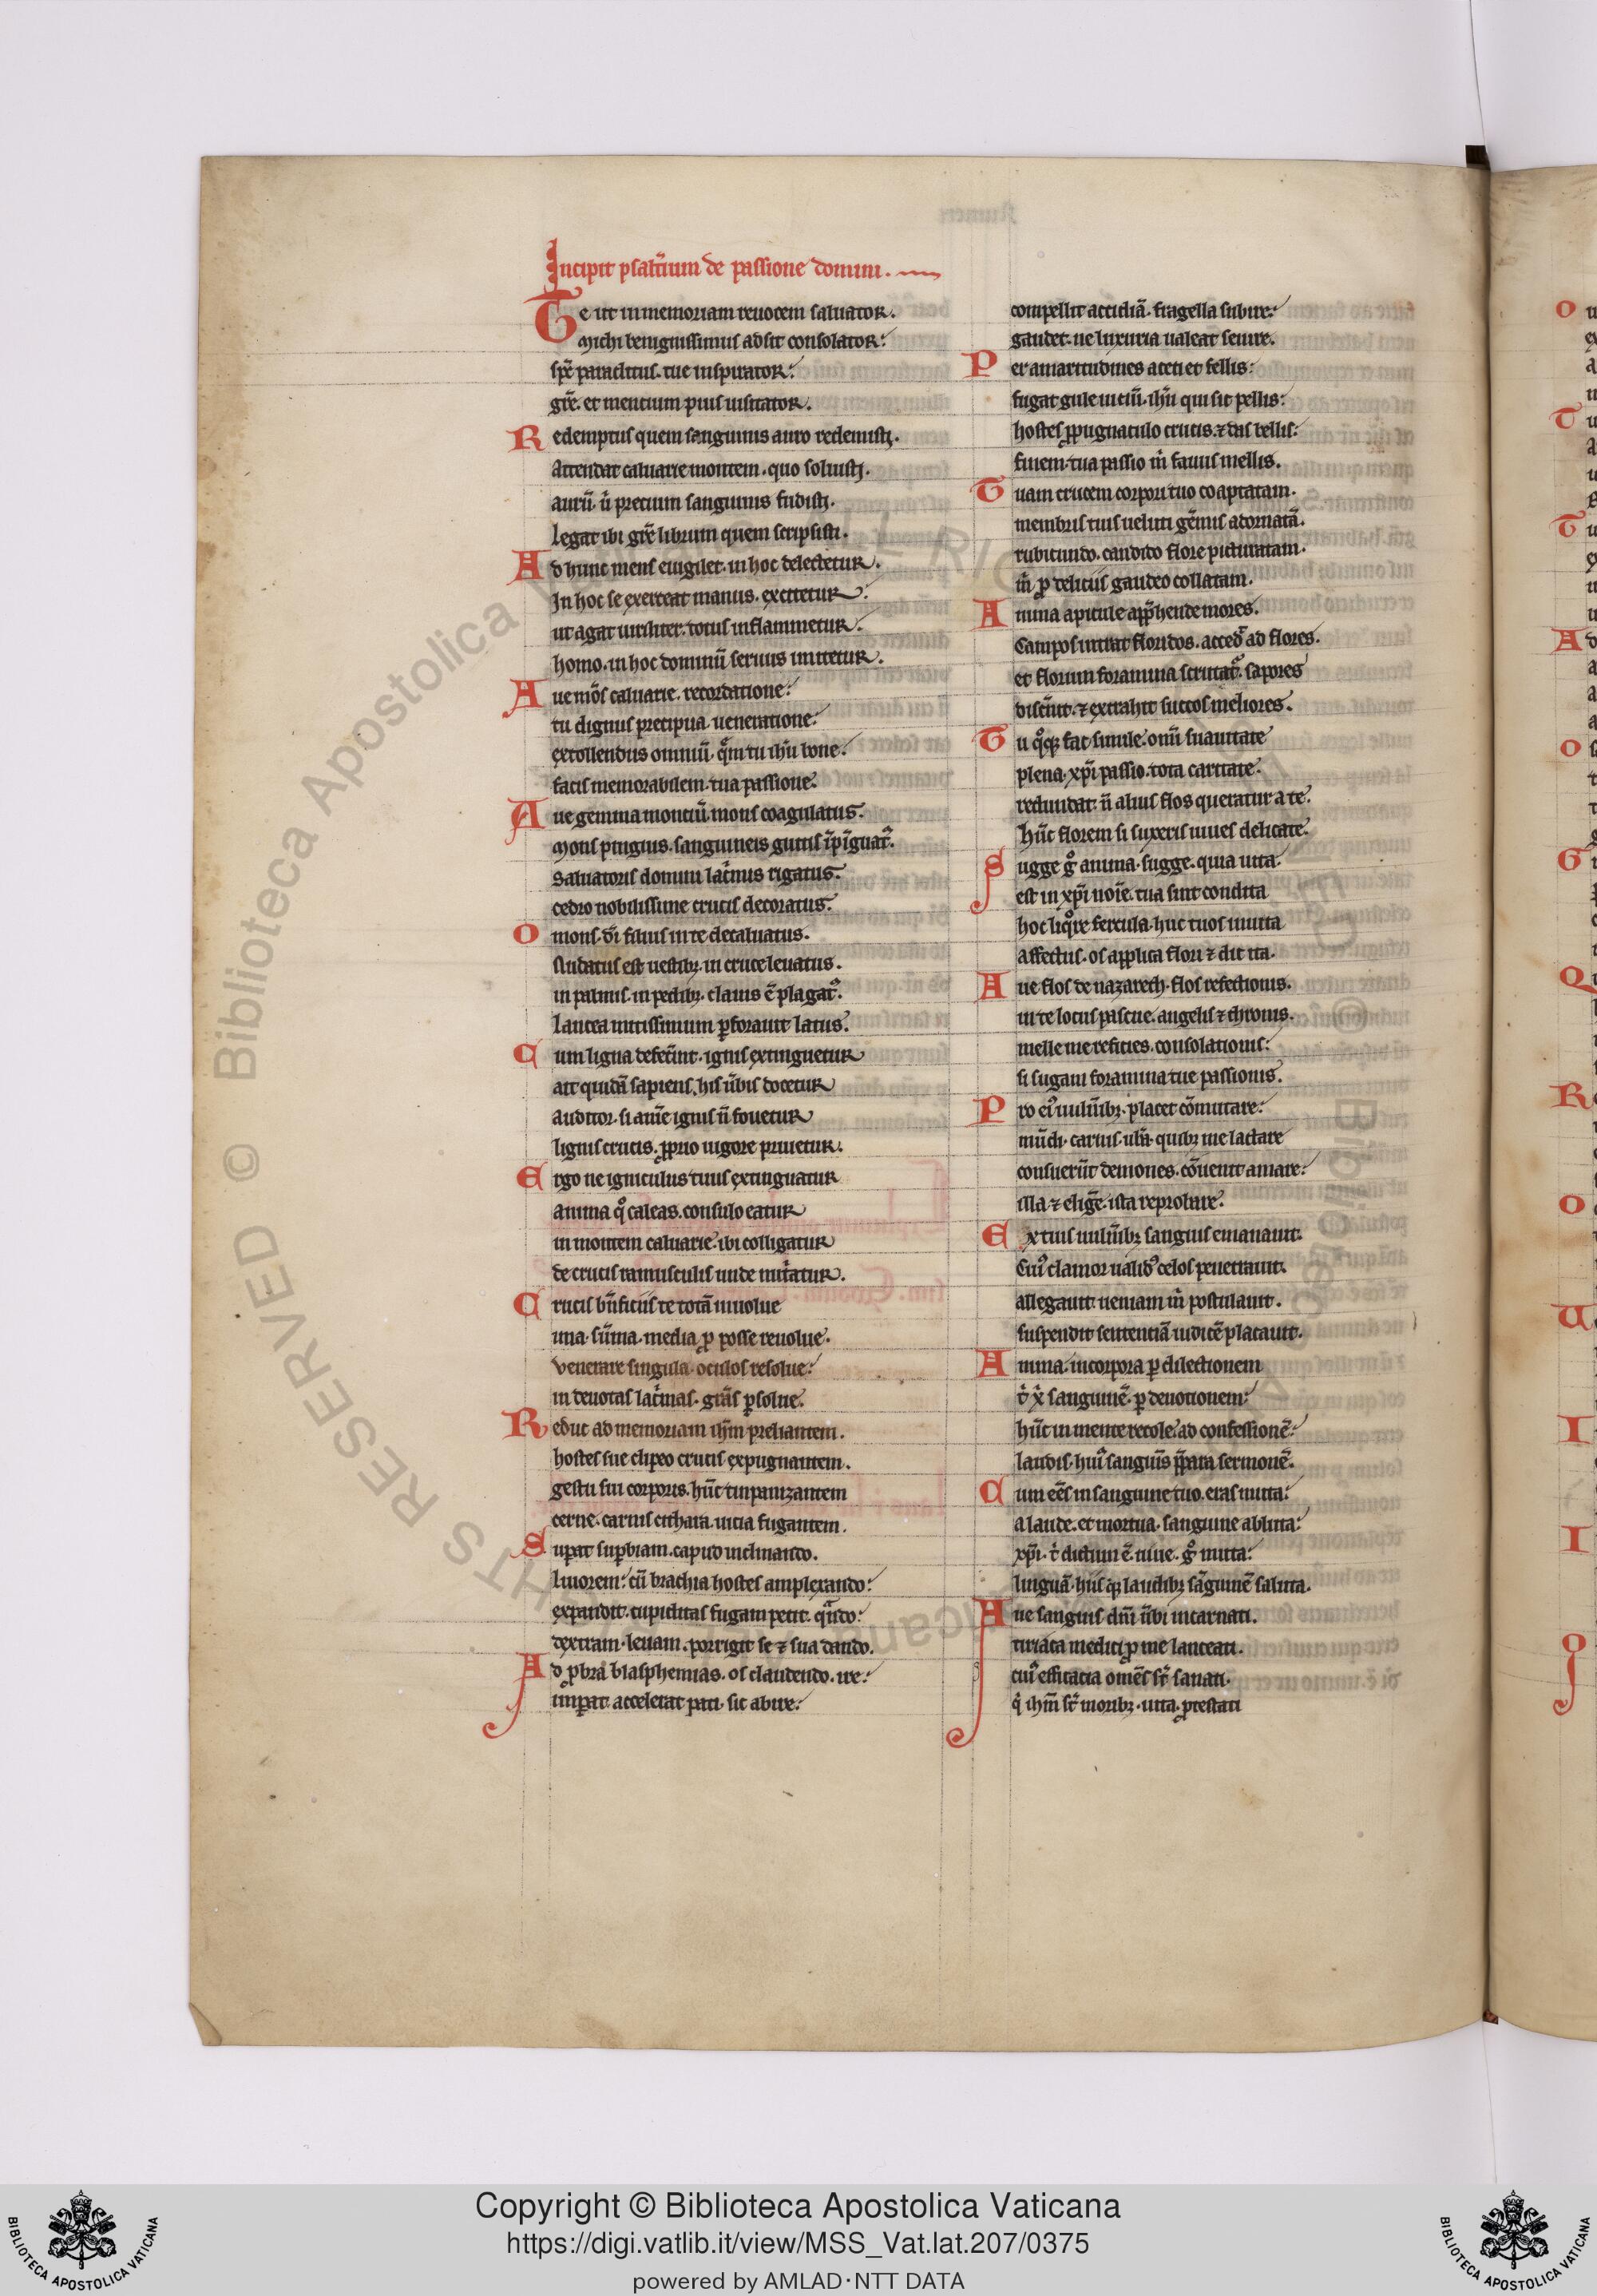 Incipit psalt̄ium de passione domini.
Te ut in memoriam reuocem saluator.
Michi benignissimus adsit consolator:
sp̄c paraclitus. tue inspirator:
gr̄e. et mentium pius uisitator.
Redemptus quem sanguinis auro redemisti.
Attendat caluarie montem. quo soluisti.
aurū. ū precium sanguinis fudisti.
Legat ibi gr̄e librum quem scripsisti.
Ad hunc mens euigilet. in hoc delectetur.
In hoc se exerceat manus. excitetur:
ut agat uiriliter. totus inflammetur.
homo. in hoc dominū seruus imitetur.
Aue mōs caluarie. recordatione:
tu dignus precipua. ueneratione:
extollendus omniū. q̄m tu ih̄u bone.
facis memorabilem. tua passione.
Aue gemma montiū. mons coagulatus.
Mons pinguis. sanguineis guttis īpīguat᷒.
Saluatoris domini lac̄mis rigatus.
cedro nobilissime crucis decoratus.
O mons. dī filius in te decaluatus.
Nudatus est uestibꝫ. in cruce leuatus.
in palmis. in pedibꝫ. clauis ē plagat᷒.
Lancea mitissimum ꝑforauit latus.
Cum ligna defec̄int. ignis extinguetur
ait quidā sapiens. his ūbis docetur
auditor. si aīne ignis n̄ fouetur
lignis crucis. ꝓprio uigore priuetur.
Ergo ne igniculus tuus extinguatur
anima qͦ caleas. consulo eatur
in montem caluarie. ibi colligatur
de crucis ramusculis unde nut̄atur.
Crucis bn̄ficiis te totā inuolue
una. sūma. media. ꝓ posse reuolue.
Venerare singula. oculos resolue:
in deuotas lac̄mas. grās ꝑsolue.
Reduc ad memoriam ih̄m preliantem.
hostes sue clipeo crucis expugnantem.
gestu sui corporis. hūc tinpanizantem
cerne. carnis cithara. uicia fugantem.
Suꝑat suꝑbiam. capud inclinando.
liuorem: cū brachia hostes amplexando:
expandit. cupiditas fugam petit. qn̄do:
dextram. leuam. porrigit se ⁊ sua dando.
Ad ꝓbra blasphemias. os claudendo. ire:
imꝑat. accelerat pati. sic abire:
compellit accidiā. flagella subire:
gaudet. ue luxuria ualeat seuire.
Per amaritudines aceti et fellis:
fugat gule uiciū. ih̄u qui sic pellis:
hostes ꝓpugnaculo crucis. ⁊ das bellis:
finem. tua passio m̄ fauus mellis.
Tuam crucem corpori tuo coaptatam.
membris tuis ueluti gēmis adornatā.
rubicundo. candido flore picturatam.
m̄ ꝓ deliciis gaudeo collatam.
Anima apicule app̄hende mores.
Campos intrat floridos. acced᷒ ad flores.
et florum foramina scrutat᷒. sapores
disc̄nit. ⁊ extrahit succos meliores.
Tu qͦqꝫ fac simile. omī suauitate
plena. xp̄i passio. tota caritate.
redundat. n̄ alius flos queratur a te.
hūc florem si suxeris uiues delicate.
Sugge gͦ anima. sugge. quia uita.
est in xp̄i noīe. tua sint condita
hoc liqͦre fercula. huc tuos inuita
affectus. os applica flori ⁊ dic ita.
Aue flos de nazareth. flos refectionis.
in te locus pascue. angelis ⁊ thronis.
melle me reficies. consolationis:
si sugam foramina tue passionis.
Pro ei᷒ uuln̄ibꝫ. placet cōmutare:
mūdi. carnis. ub̄a. quibꝫ me lactare
consuerūt demones. cōuenit amare:
illa ⁊ eliḡe. ista reprobare.
Ex tuis uuln̄ibꝫ sanguis emanauit.
Cui᷒ clamor ualid᷒ celos penetrauit.
allegauit. ueniam m̄ postulauit.
suspendit sententiā iudicē placauit.
Anima. incorpora ꝑ dilectionem
sanguinē. ꝑ deuotionem:
hūc in mente recole. ad confessionē:
laudis. hui᷒ sanguīs p̄para sermonē.
Cum eēs in sanguine tuo. eras muta:
a laude. et mortua. sanguine abluta:
xp̄i. t̄ dictum ē. uiue. gͦ muta:
linguā. hiis qꝫ laudibꝫ sāguinē saluta.
Aue sanguis dn̄i ūbi incarnati.
tiriaca medici ꝓ me lanceati.
cui᷒ efficacia omēs st̄ sanati.
q̄ ih̄m st̄ moribꝫ. uita. ꝓtestati
Copyright © Biblioteca Apostolica Vaticana
https://digi.vatlib.it/view/MSS_Vat.lat.207/0375
powered by AMLAD·NTT DATA
BIBLIOTECA APOSTOLICA VATICANA
BIBLIOTECA APOSTOLICA VATICANA